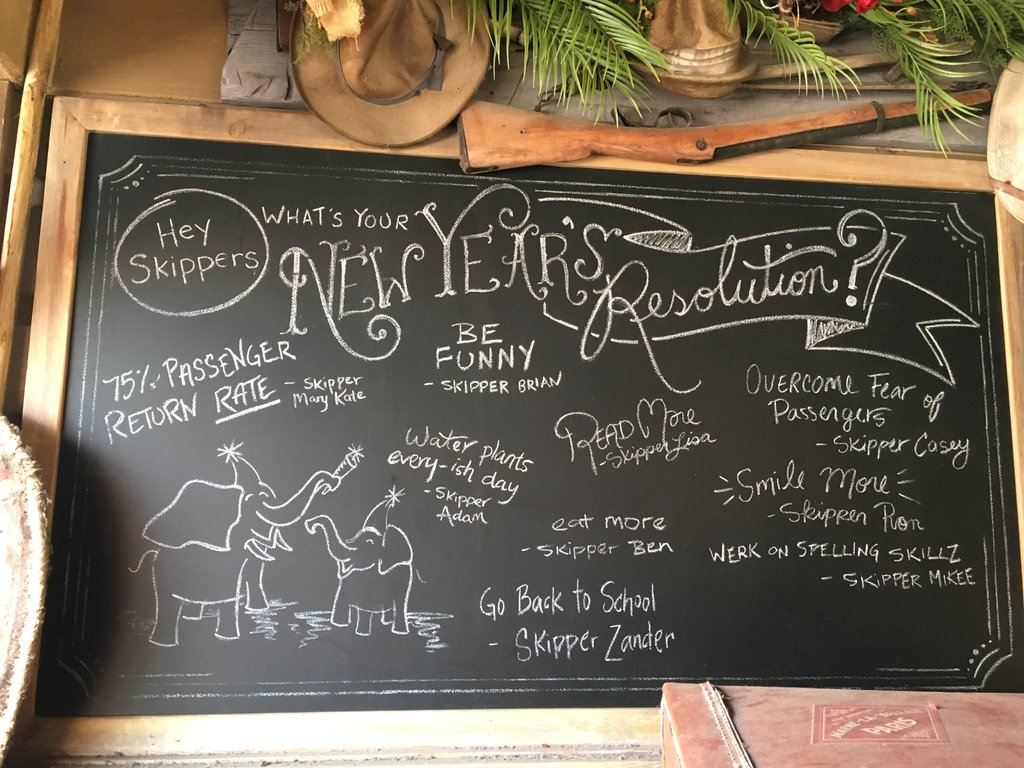 Hey
Skippers
WHAT'S YOUR
NEW YEAR'S
Resolution?
75% PASSENGER
RETURN RATE
- Skipper
Mary Kate
BE
FUNNY
- SKIPPER BRIAN
Water plants
every-ish day
- Skipper
Adam
READ More
- Skipper Lisa
OVERCOME Fear of
Passengers
- Skipper Casey
Smile More
- Skipper Ron
eat more
- Skipper Ben
WERK ON SPELLING SKILLZ
- SKIPPER MIKEE
Go Back to School
- Skipper Zander
PARIS